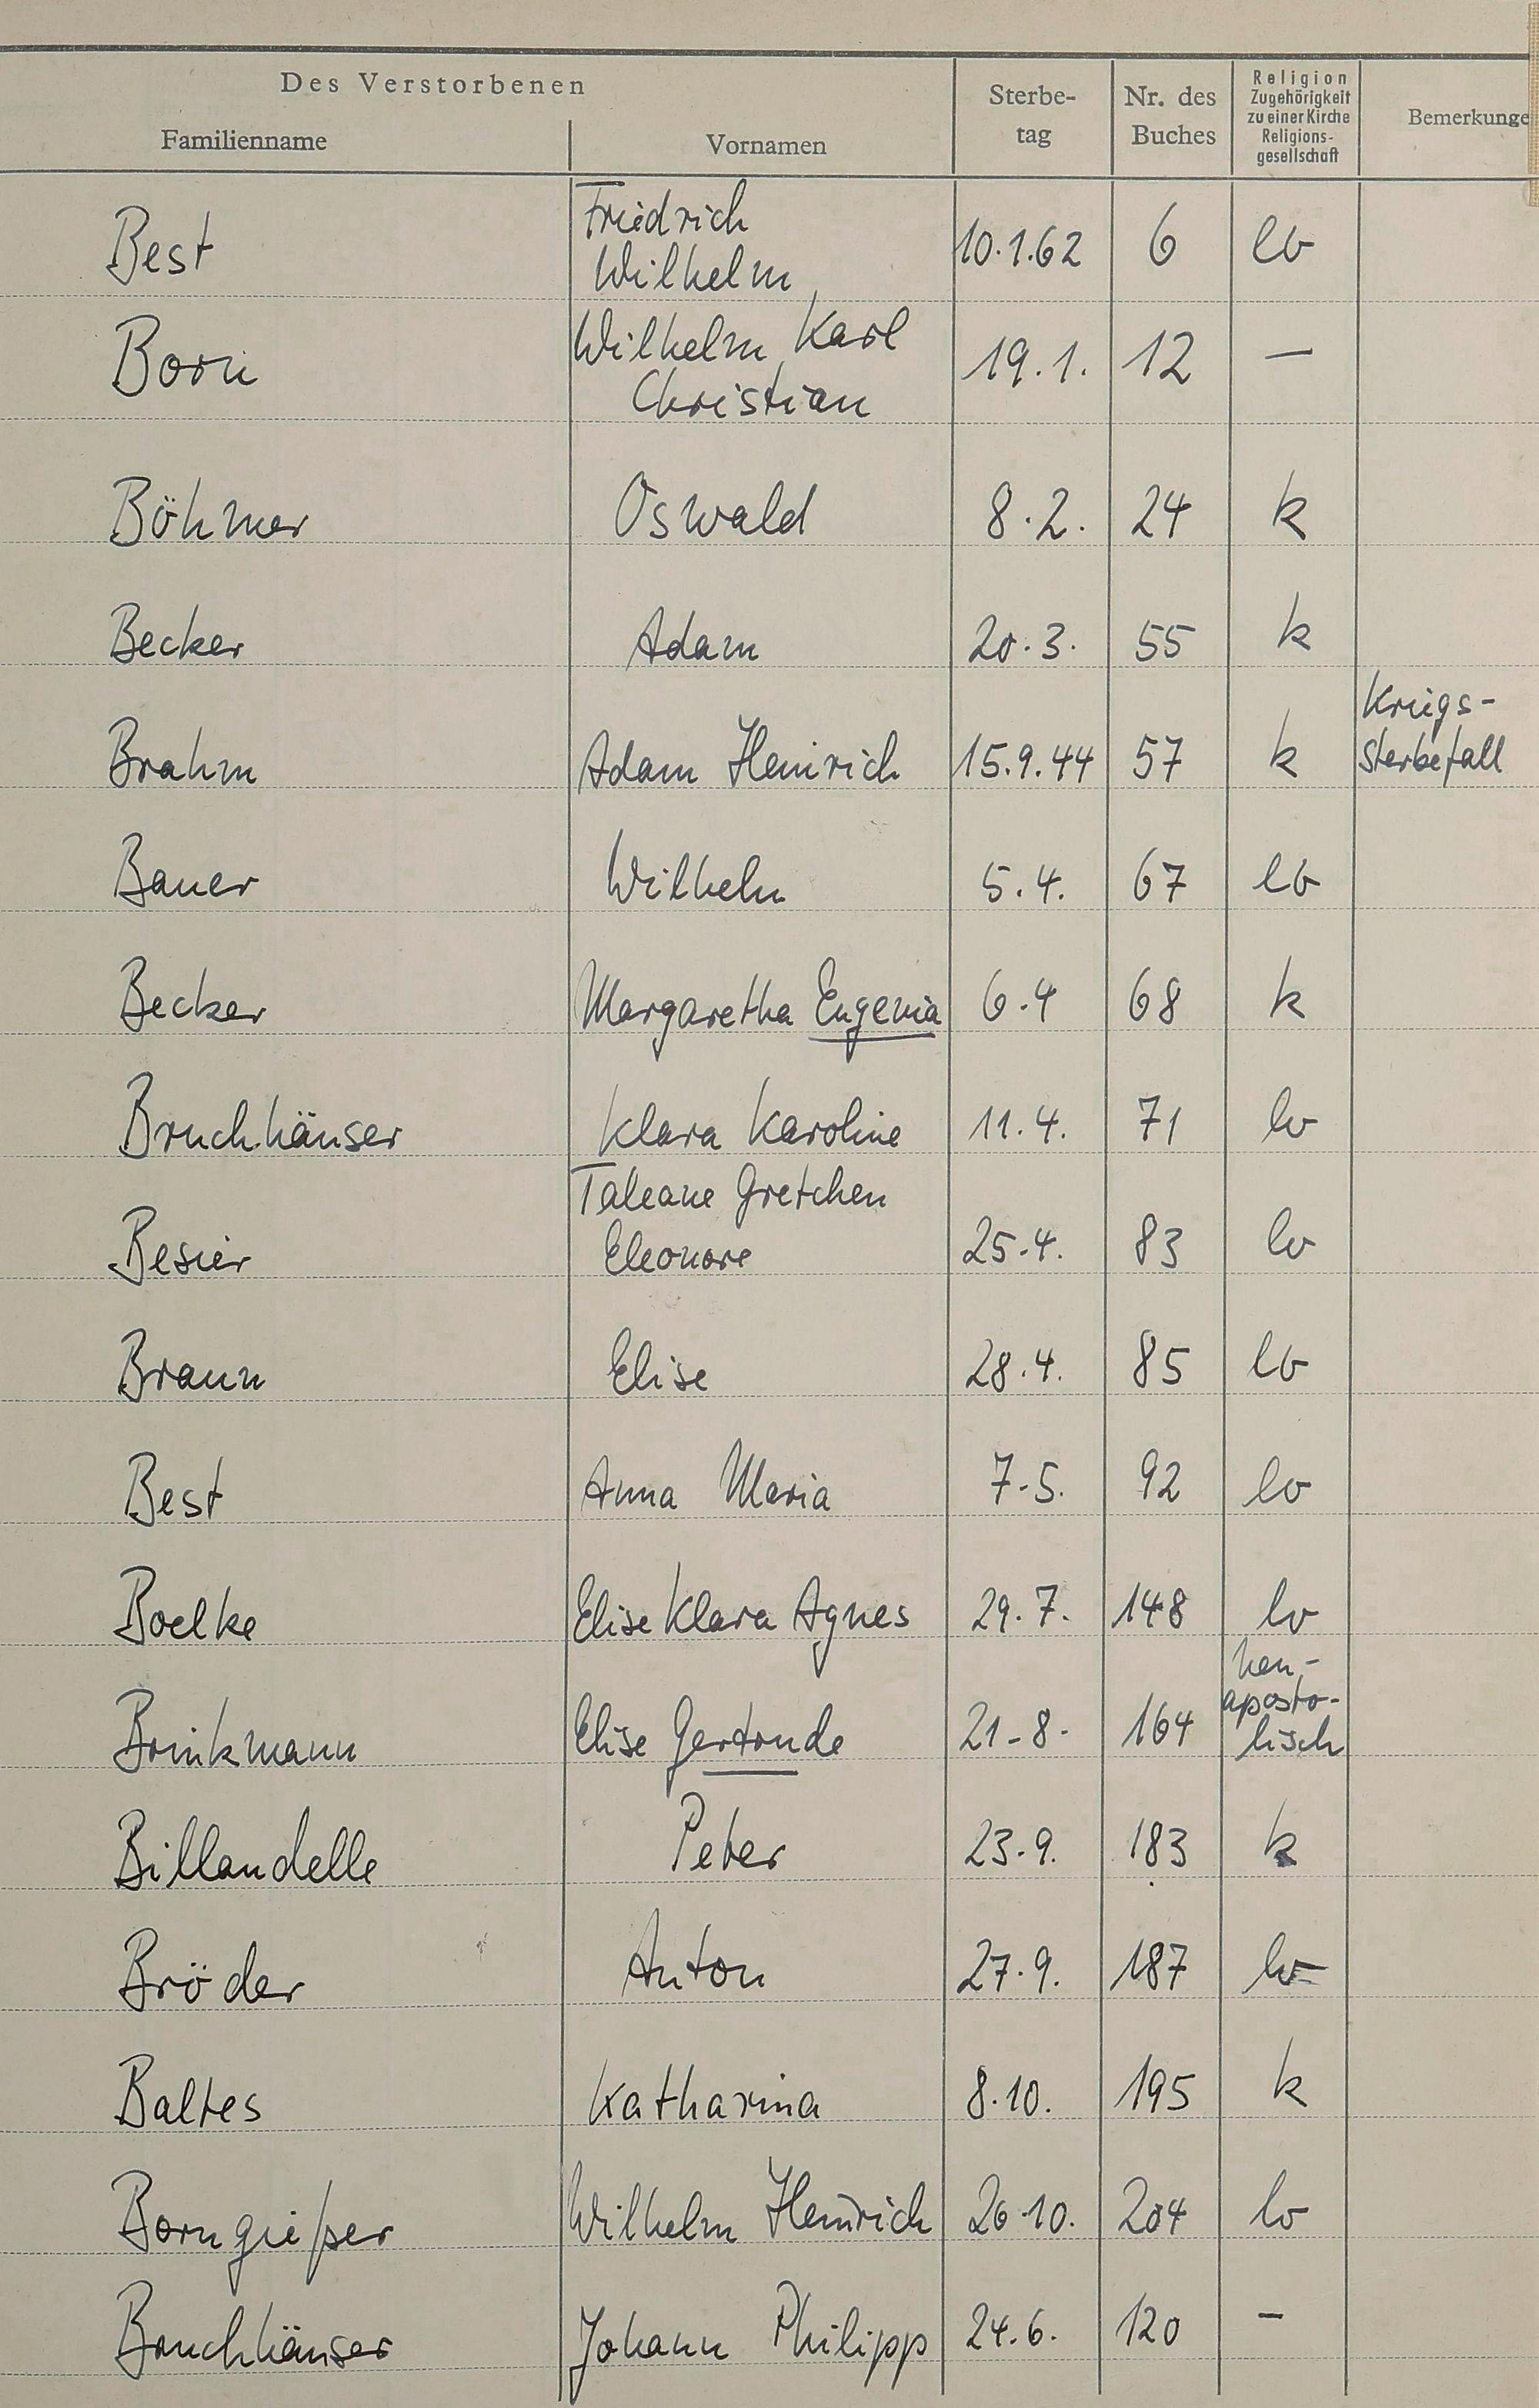 Des Verstorbenen
Familienname
Vornamen
Sterbe-
tag
Nr. des
Buches
Religion
Zugehörigkeit
zu einer Kirche
Religions-
gesellschaft
Bemerkunge
Friedrich
Best Wilhelm 10.1.62 6 ev
Wilhelm Karl
Born Christian 19.1. 12 —
Böhmer Oswald 8.2. 24 k
Becker Adam 20.3. 55 k
Kriegs-
Brahm Adam Heinrich 15.9.44 57 k Sterbefall
Bauer Wilhelm 5.4. 67 ev
Becker Margaretha Eugenia 6.4 68 k
Bruchhäuser Klara Karoline 11.4. 71 ev
Taleane Gretchen
Besier Eleonore 25.4. 83 ev
Braun Elise 28.4. 85 ev
Best Anna Maria 7.5. 92 ev
Boelke Elise Klara Agnes 29.7. 148 ev
neu-
aposto-
Brinkmann Elise Gertrude 21.8. 164 lisch
Billaudelle Peter 23.9. 183 k
Bröder Anton 27.9. 187 ev
Baltes Katharina 8.10. 195 k
Borngießer Wilhelm Heinrich 26.10. 204 ev
Bruchhäuser Johann Philipp 24.6. 120 -